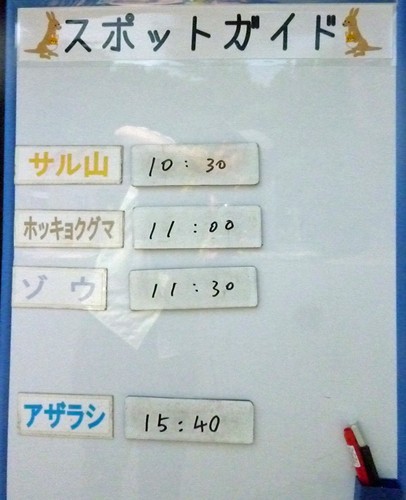 スポットガイド
サル山 10:30
ホッキョクグマ 11:00
ゾウ 11:30
アザラシ 15:40